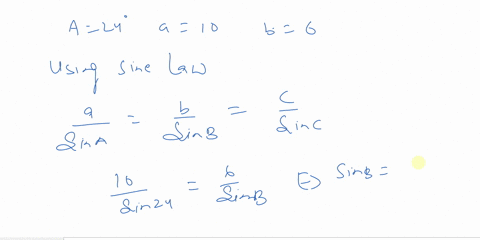 A = 24° a = 10 b = 6
Using Sine Law
a/SinA = b/SinB = c/SinC
10/Sin24 = 6/SinB ⇒ SinB =